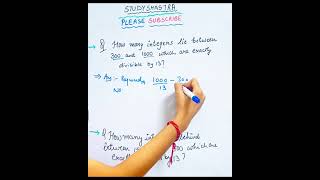 STUDYSHASTRA
PLEASE SUBSCRIBE
Q. How many integers lie between
300 and 1000 which are exactly
divisible by 13?
⇒ Ans:- Required 1000/13 - 300
No:
Q. How many inte behind
between 00 which are
exac by 13?